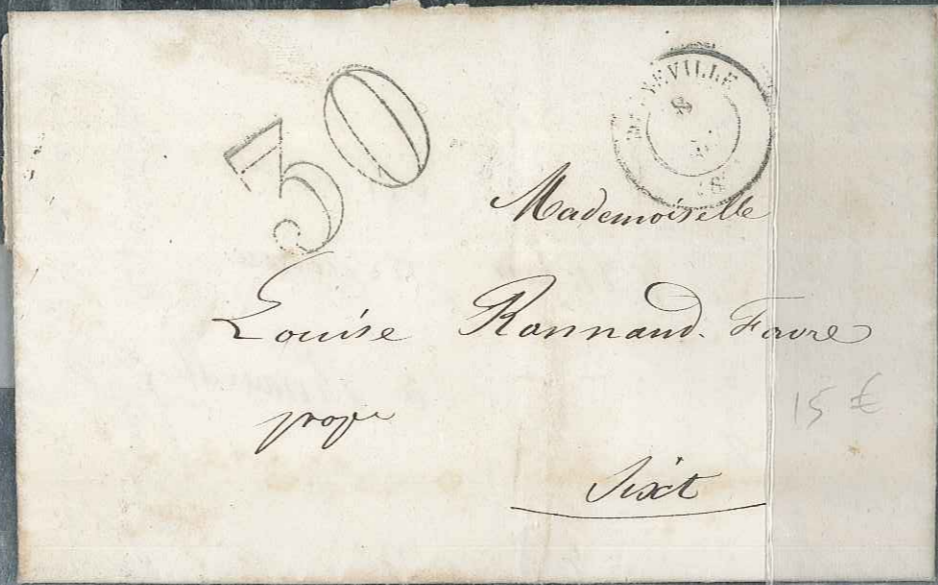 30
YEVILLE
8
Mademoiselle
Louise Rannaud. Favre
15 €
Sixt